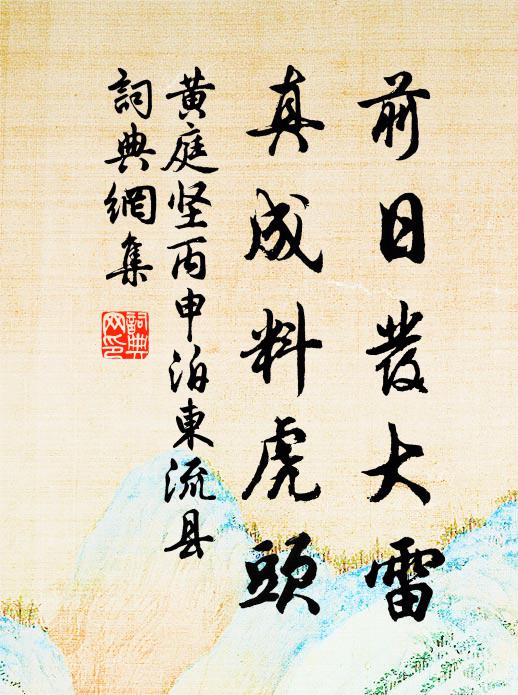 前日發大雷
真成料虎頭
黃庭坚丙申泊東流县
詞典網集
詞典
网印